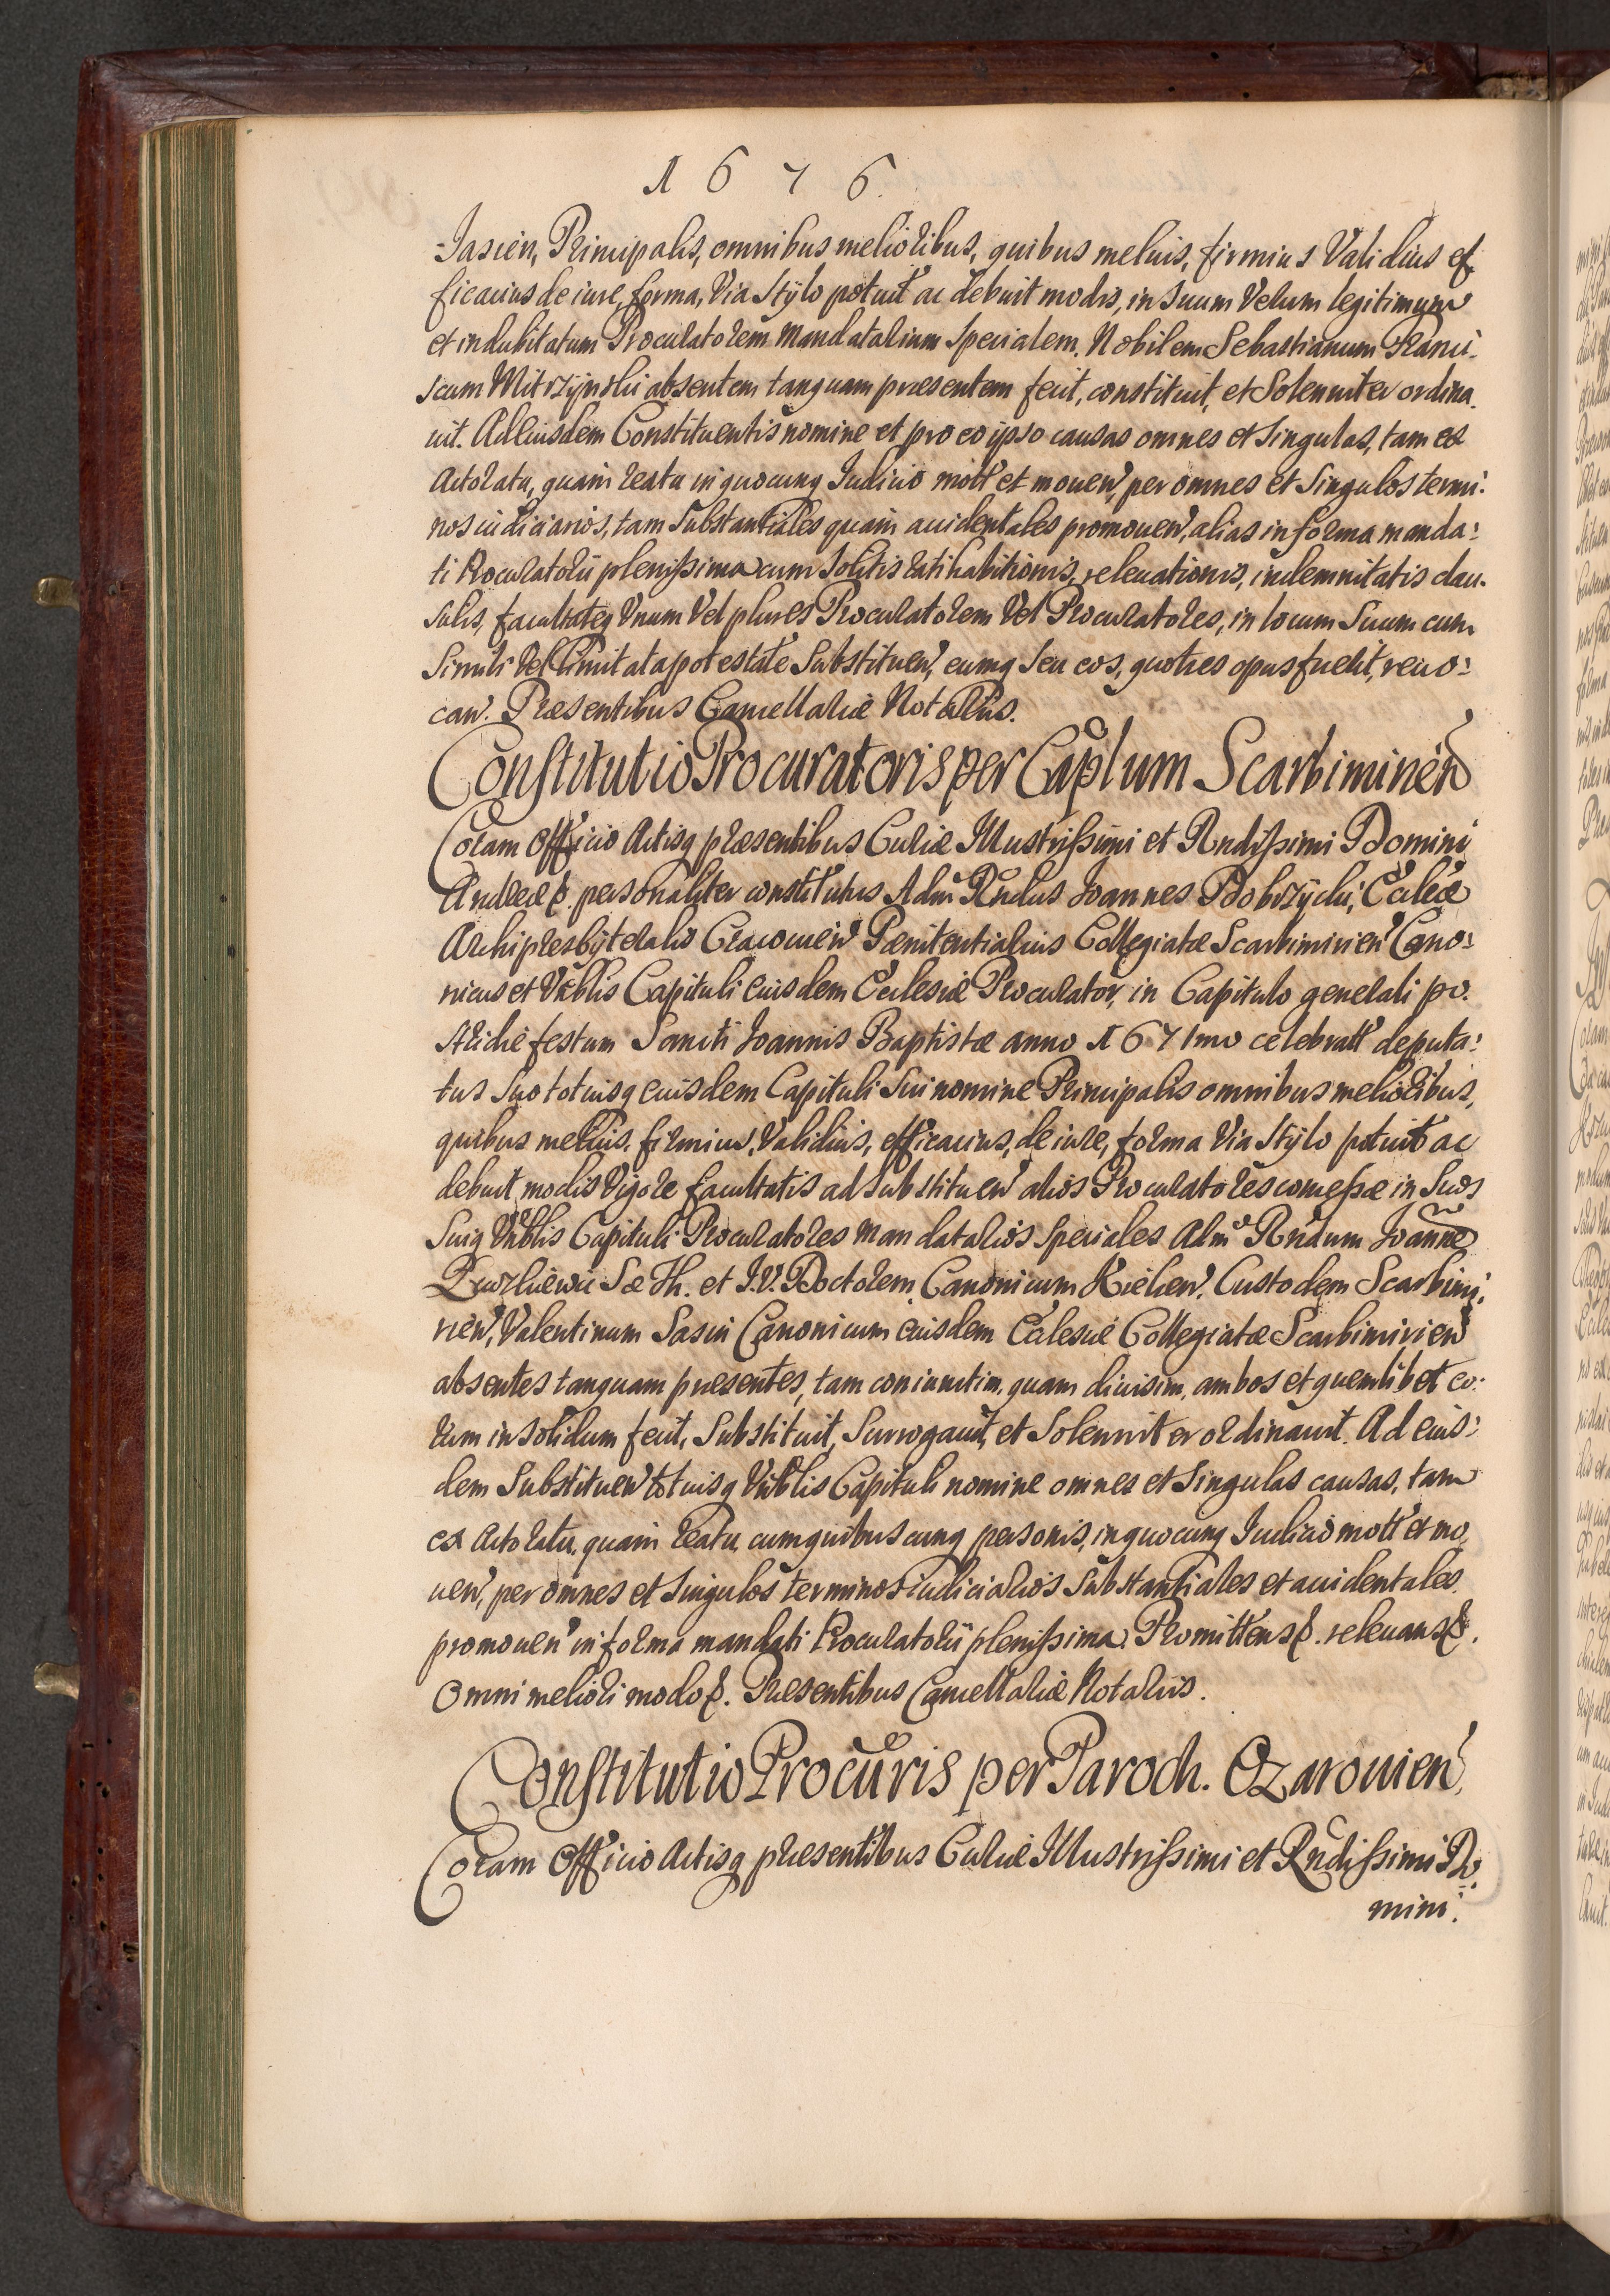 1676.
Jasień, Principalis, omnibus melioribus, quibus melius, firmius Validius ef
ficacius de iure, forma, Via Stylo potuit ac debuit modis, in Suum Verum legitimum
et indubitatum Procuratorem Mandatarium Specialem. Nobilem Sebastianum Franci-
scum Mitrzynski absentem tanquam præsentem fecit, constituit, et Solenniter ordina
uit. Ad Eiusdem Constituentis nomine et pro eo ipso causas omnes et Singulas, tam ex
Actoratu, quam reatu in quocunq Iudicio mott et mouen, per omnes et Singulos termi:
nos iudiciarios, tam Substantiales quam accidentales promouen, alias in forma manda:
ti Procuratorii plenissima cum Solitis ratihabitionis, releuationis, indemnitatis clau-
sulis, facultateq Vnum Vel plures Procuratorem Vel Procuratores, in locum Suum cum
Simili Vel limitata potestate Substituen, eumq Seu eos, quoties opus fuerit, reuo:
can. Præsentibus Cancellariæ Notariis.
Constitutio Procuratoris per Caplum Scarbimirien
Coram Officio Actisq præsentibus Curiæ Illustrissimi et Rndissimi Domini
Andreæ &. personaliter constitutus Adm Rndus Joannes Dobrzycki, Ecclæ
Archipresbyteralis Cracouien Pænitentiarius Collegiatæ Scarbimirien Cano:
nicus et Vnblis Capituli eiusdem Ecclesiæ Procurator, in Capitulo generali po-
stridie festum Sancti Joannis Baptistæ anno 1671mo celebratt deputa:
tus Suo totiusq eiusdem Capituli Sui nomine Principalis omnibus melioribus,
quibus melius, firmius, Validius, efficacius, de iure, forma Via Stylo potuit ac
debuit, modis Vigore facultatis ad substituen alios Procuratores concessæ in Suos
Suiq Vnblis Capituli Procuratores Mandatarios Speciales Adm Rndum Joanne
Sæ Th. et J.V. Doctorem, Canonicum Kielcen. Custodem Scarbimi:
rien, Valentinum Sasin Canonicum eiusdem Ecclesiæ Collegiatæ Scarbimirien
absentes tanquam præsentes, tam coniunctim, quam diuisim, ambos et quemlibet eo-
rum in solidum fecit, Substituit, Surrogauit, et Solenniter ordinauit. Ad eius:
dem Substituen totiusq Vnblis Capituli nomine omnes et Singulas causas, tam
ex Actoratu, quam reatu, cum quibuscunq personis, in quocunq Iudicio mott et mo
uen, per omnes et Singulos terminos iudiciarios Substantiales et accidentales
promouen in forma mandati Procuratorii plenissima. Promittens &. releuans &.
Omni meliori modo &. Præsentibus Cancellariæ Notariis.
Constitutio Procuris per Paroch. Ozarouien
Coram Officio Actisq præsentibus Curiæ Illustrissimi et Rndissimi Do-
mini.